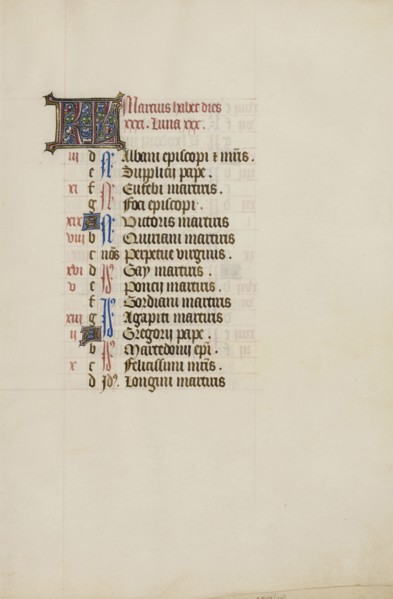 KL Marcius habet dies
xxxi. Luna xxx.
iii d N Albani episcopi ⁊ mris.
e Supplicii pape.
xi f N Eusebi martiris.
g Foci episcopi.
xix A N Victoris martiris
viii b Quiriani martiris
c nos Perpetue virginis.
xvi d Gay martiris.
v e Poncii martiris.
f Gordiani martiris
xiii g Agapiti martiris
ii A Gregorii pape.
b Macedonii epi.
x c Felicissimi mris.
d Jds. Longini martiris